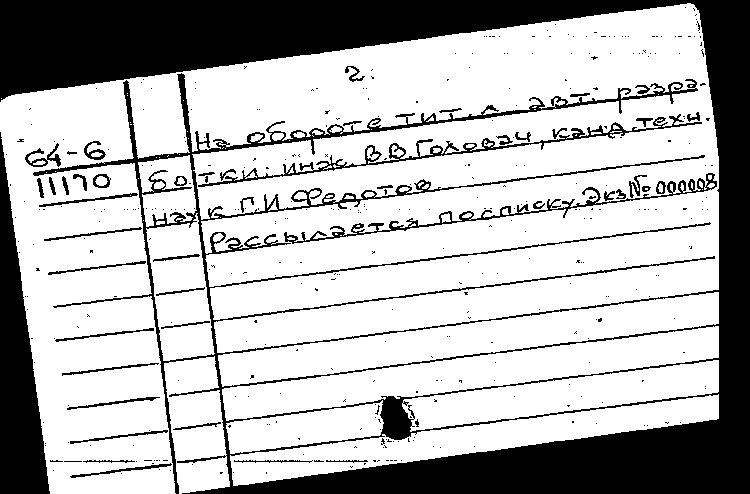 2.
64-6
11170
На обороте тит. л. авт. разра-
ботки: инж. В.В.Головач, канд. техн.
наук Г.И Федотов.
Рассылается по списку. Экз № 000008